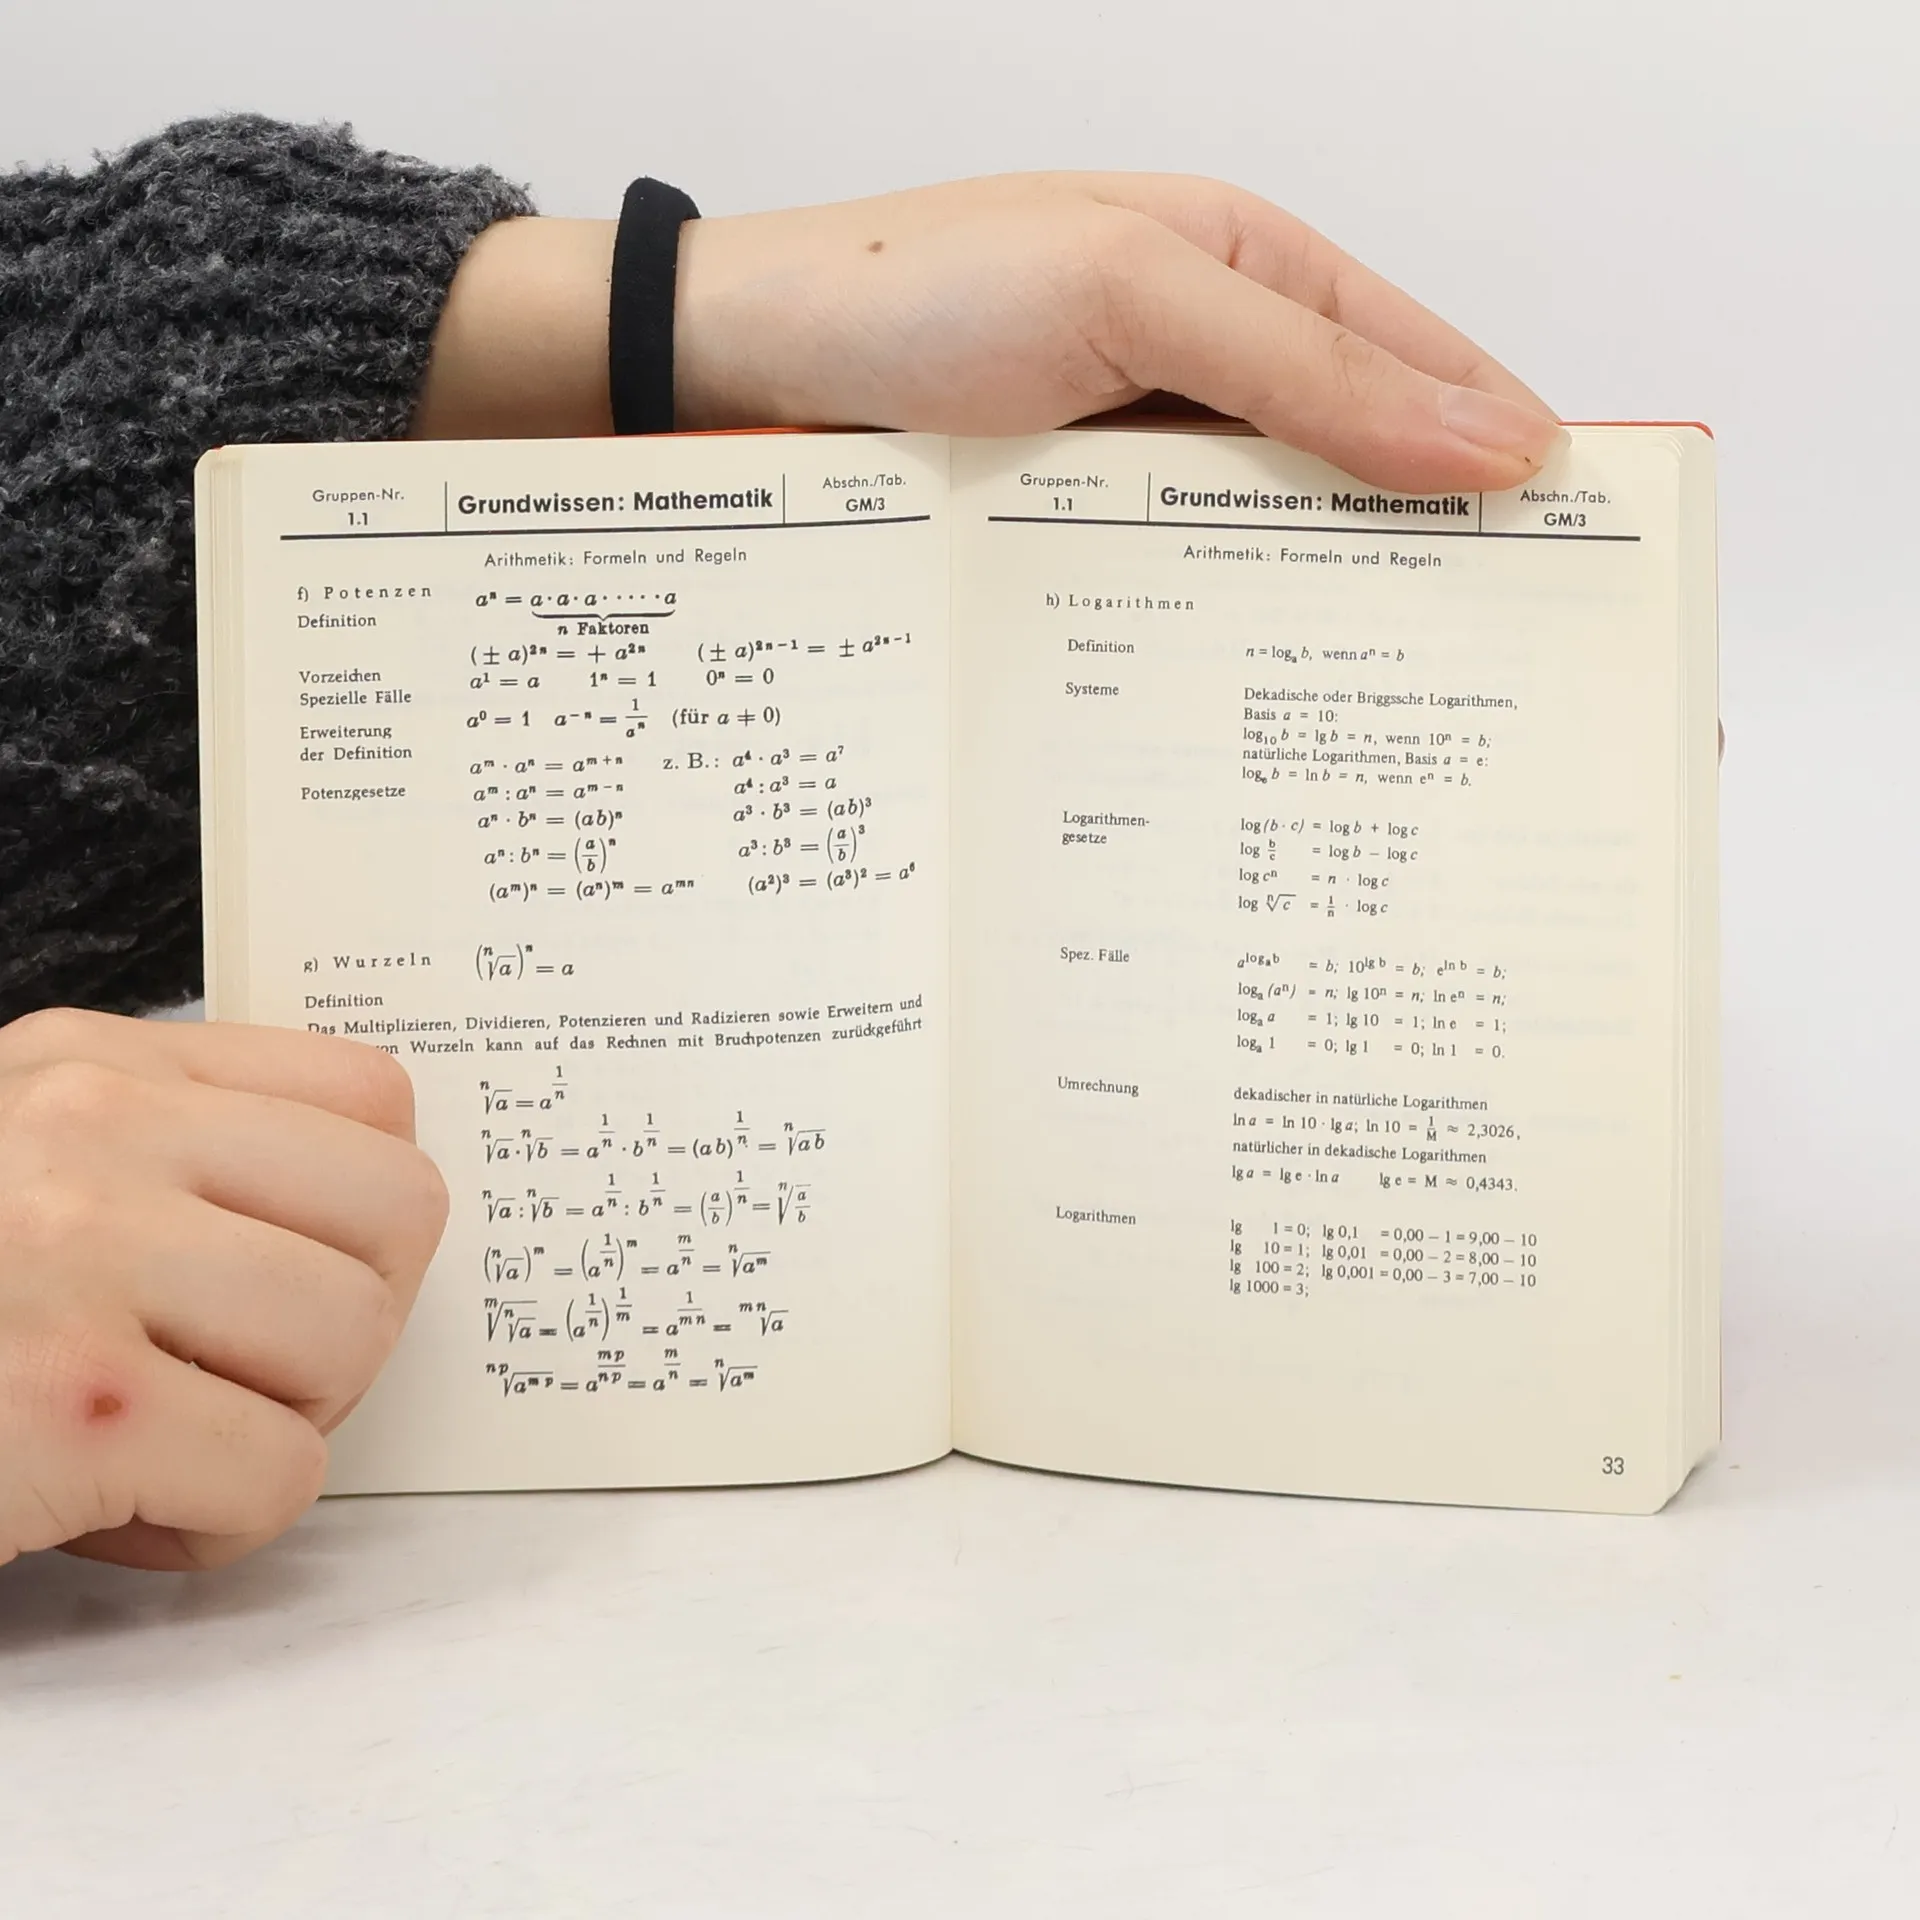 Gruppen-Nr.
1.1
Grundwissen: Mathematik
Abschn./Tab.
GM/3
Arithmetik: Formeln und Regeln
f) Potenzen
aⁿ = a · a · a · · · · · a
n Faktoren
Definition
(± a)²ⁿ = + a²ⁿ (± a)²ⁿ⁻¹ = ± a²ⁿ⁻¹
Vorzeichen
a¹ = a 1ⁿ = 1 0ⁿ = 0
Spezielle Fälle
a⁰ = 1 a⁻ⁿ = 1/aⁿ (für a ≠ 0)
Erweiterung
der Definition
aᵐ · aⁿ = aᵐ⁺ⁿ z. B.: a⁴ · a³ = a⁷
Potenzgesetze
aᵐ : aⁿ = aᵐ⁻ⁿ a⁴ : a³ = a
aⁿ · bⁿ = (ab)ⁿ a³ · b³ = (ab)³
aⁿ : bⁿ = (a/b)ⁿ a³ : b³ = (a/b)³
(aᵐ)ⁿ = (aⁿ)ᵐ = aᵐⁿ (a²)³ = (a³)² = a⁶
g) Wurzeln
(ⁿ√a)ⁿ = a
Definition
Das Multiplizieren, Dividieren, Potenzieren und Radizieren sowie Erweitern und
von Wurzeln kann auf das Rechnen mit Bruchpotenzen zurückgeführt
ⁿ√a = a^(1/n)
ⁿ√a · ⁿ√b = a^(1/n) · b^(1/n) = (ab)^(1/n) = ⁿ√ab
ⁿ√a : ⁿ√b = a^(1/n) : b^(1/n) = (a/b)^(1/n) = ⁿ√(a/b)
(ⁿ√a)ᵐ = (a^(1/n))ᵐ = a^(m/n) = ⁿ√aᵐ
ᵐ√(ⁿ√a) = (a^(1/n))^(1/m) = a^(1/mn) = ᵐⁿ√a
ⁿᵖ√aᵐᵖ = a^(mp/np) = a^(m/n) = ⁿ√aᵐ
Gruppen-Nr.
1.1
Grundwissen: Mathematik
Abschn./Tab.
GM/3
Arithmetik: Formeln und Regeln
h) Logarithmen
Definition
n = logₐ b, wenn aⁿ = b
Systeme
Dekadische oder Briggssche Logarithmen,
Basis a = 10:
log₁₀ b = lg b = n, wenn 10ⁿ = b;
natürliche Logarithmen, Basis a = e:
logₑ b = ln b = n, wenn eⁿ = b.
Logarithmen-
gesetze
log (b · c) = log b + log c
log b/c = log b – log c
log cⁿ = n · log c
log ⁿ√c = 1/n · log c
Spez. Fälle
a^(logₐ b) = b; 10^(lg b) = b; e^(ln b) = b;
logₐ (aⁿ) = n; lg 10ⁿ = n; ln eⁿ = n;
logₐ a = 1; lg 10 = 1; ln e = 1;
logₐ 1 = 0; lg 1 = 0; ln 1 = 0.
Umrechnung
dekadischer in natürliche Logarithmen
ln a = ln 10 · lg a; ln 10 = 1/M ≈ 2,3026,
natürlicher in dekadische Logarithmen
lg a = lg e · ln a lg e = M ≈ 0,4343.
Logarithmen
lg 1 = 0; lg 0,1 = 0,00 – 1 = 9,00 – 10
lg 10 = 1; lg 0,01 = 0,00 – 2 = 8,00 – 10
lg 100 = 2; lg 0,001 = 0,00 – 3 = 7,00 – 10
lg 1000 = 3;
33